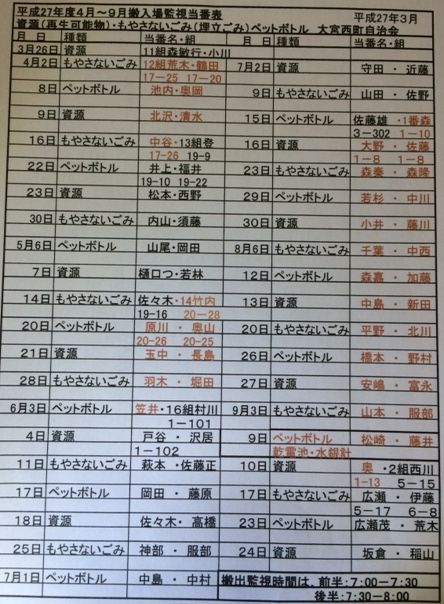 平成27年度4月～9月搬入場監視当番表 平成27年3月
資源(再生可能物)・もやさないごみ(埋立ごみ)ペットボトル 大宮西町自治会
月 日 種類 当番名・組 月 日 種類 当番名・組
3月26日 資源 11組森敏行・小川
4月2日 もやさないごみ 12組荒木・鶴田 7月2日 資源 守田 ・ 近藤
17－25 17－20
8日 ペットボトル 池内・奥岡 9日 もやさないごみ 山田 ・ 佐野
9日 資源 北沢・清水 15日 ペットボトル 佐藤雄 ・1番森
3－302 1－10
16日 もやさないごみ 中谷・13組登 16日 資源 大野 ・ 佐藤
17－26 19－9 1－8 1－8
22日 ペットボトル 井上・福井 23日 もやさないごみ 森秦 ・ 森隆
19－10 19－22
23日 資源 松本・西野 29日 ペットボトル 若杉 ・ 中川
30日 もやさないごみ 内山・須藤 30日 資源 小井 ・ 藤川
5月6日 ペットボトル 山尾・岡田 8月6日 もやさないごみ 千葉 ・ 中西
7日 資源 樋口つ・若林 12日 ペットボトル 森嘉 ・ 加藤
14日 もやさないごみ 佐々木・14竹内 13日 資源 中島 ・ 新田
19－16 20－28
20日 ペットボトル 原川 ・ 奥山 20日 もやさないごみ 平野 ・ 北川
20－26 20－25
21日 資源 玉中 ・ 長島 26日 ペットボトル 橋本 ・ 野村
28日 もやさないごみ 羽木 ・ 堀田 27日 資源 安嶋 ・ 富永
6月3日 ペットボトル 笠井・16組村川 9月3日 もやさないごみ 山本 ・ 服部
1－101
4日 資源 戸谷 ・ 沢居 9日 ペットボトル 松崎 ・ 藤井
1－102 乾電池・水銀計
11日 もやさないごみ 萩本 ・佐藤正 10日 資源 奥 ・2組西川
1－13 5－15
17日 ペットボトル 岡田 ・ 藤原 17日 もやさないごみ 広瀬 ・ 伊藤
5－17 6－8
18日 資源 佐々木・ 高橋 23日 ペットボトル 広瀬茂 ・ 荒木
25日 もやさないごみ 神部 ・ 服部 24日 資源 坂倉 ・ 稲山
7月1日 ペットボトル 中島 ・ 中村 搬出監視時間は、前半:7:00－7:30
後半:7:30－8:00